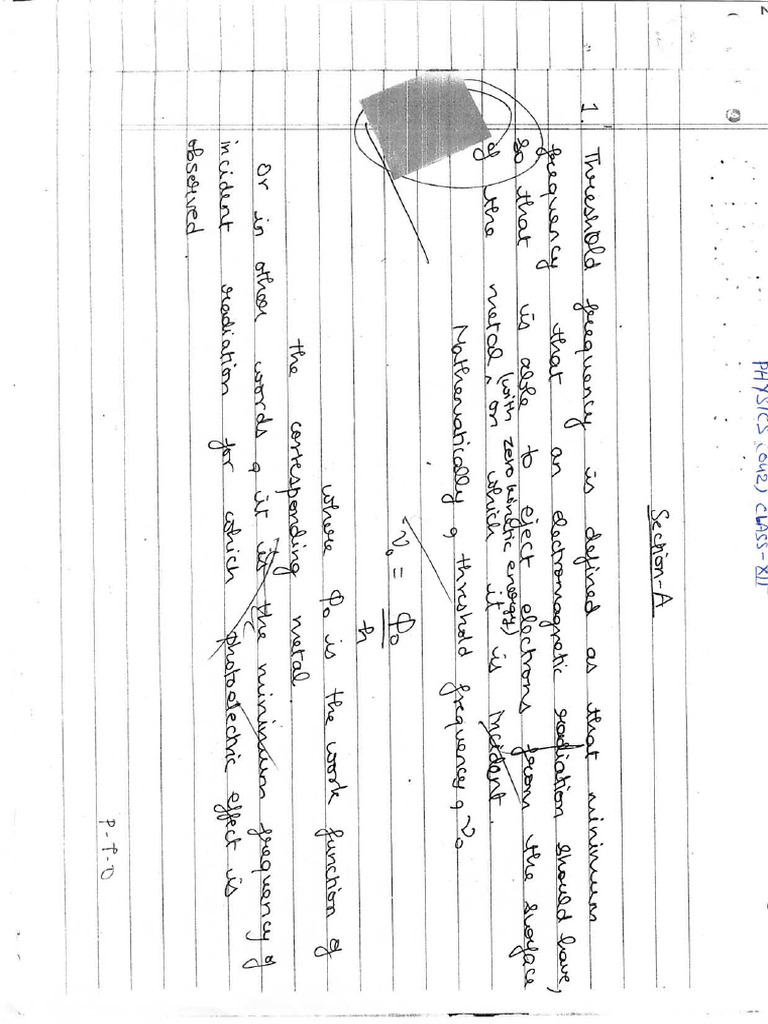 PHYSICS (042) CLASS-XII
Section-A
1. Threshold frequency is defined as that minimum
frequency that an electromagnetic radiation should have,
so that is able to eject electrons from the surface
(with zero kinetic energy)
of the metal, on which it is incident.
Mathematically, threshold frequency, ν₀
ν₀ = φ₀
h
where φ₀ is the work function of
the corresponding metal
Or in other words, it is the minimum frequency of
incident radiation for which photoelectric effect is
observed
P.T.O